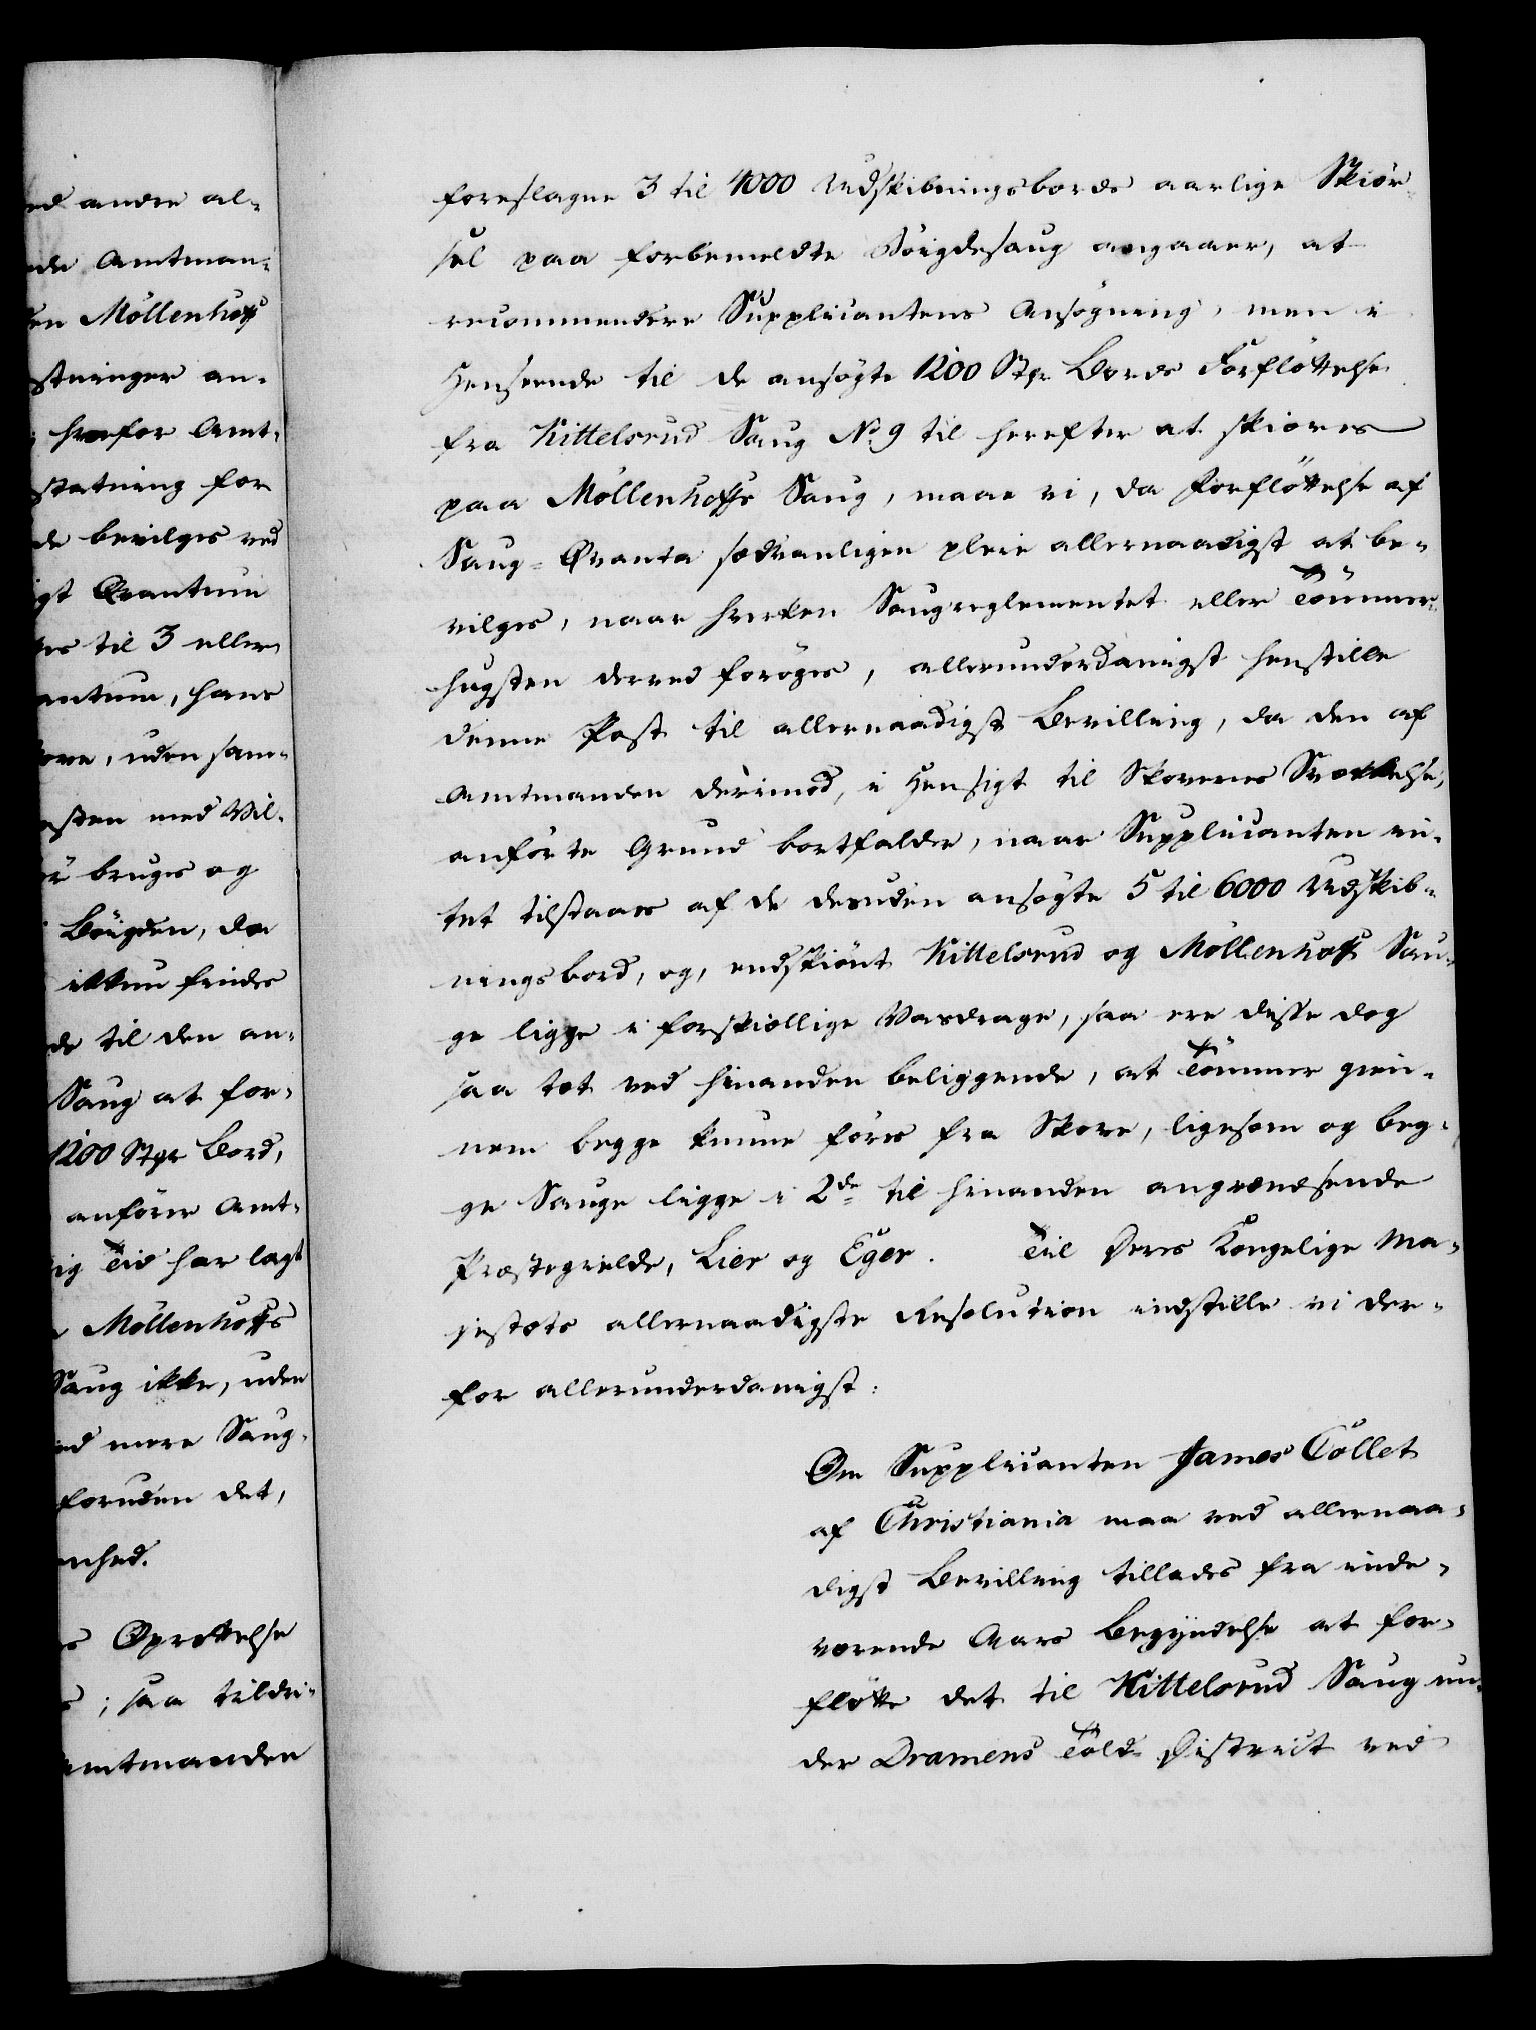 ed andre al-
ede Amtman-
en Möllenhoff
stninger an-
hvorfor Amt-
statning for
de bevilges ved
igt Qvantum
es til 3 eller
antum, hans
ove, uden sam-
esten med Vil-
ör bruges og
Böigden, da
ikkun findes
de til den an-
Saug at for-
1200 Stkr Bord,
anförer Amt-
ig Tid har lagt
Möllenhoffs
Saug ikke, uden
ed mere Saug-
foruden det,
enhed.
s Oprettelse
s; saa tildri-
Amtmanden
foreslagne 3 til 4000 Udskibningsbords aarlige Skiör-
sel paa forbemeldte Böigdesaug angaaer, at
recommendere Supplicantens Ansögning, men i
Henseende til de ansögte 1200 Stkr Bords Forflöttelse
fra Kittelsrud Saug No 9 til herefter at skiæres
paa Möllenhoffs Saug, maae vi, da Forflöttelse af
Saug-Qvanta sædvanligen pleie allernaadigst at be-
vilges, naar hverken Saugreglementet eller Tömmer-
hugsten derved foröges, allerunderdanigst henstille
denne Post til allernaadigst Bevilling, da den af
Amtmanden derimod, i Hensigt til Skovenes Svækkelse,
anförte Grund bortfalder, naar Supplicanten in-
tet tilstaaes af de desuden ansögte 5 til 6000 Udskib-
ningsbord, og, endskiönt Kittelsrud og Möllenhoff Sau-
ge ligge i forskiællige Vasdrage, saa ere disse dog
saa tæt ved hinanden beliggende, at Tömmer gien-
nem begge kunne föres fra Skove, ligesom og beg-
ge Sauge ligge i 2de til hinanden angrændsende
Præstegielde, Lier og Eger. Til Deres Kongelige Ma-
jestæts allernaadigste Resolution indstille vi der-
for allerunderdanigst:
Om Supplicanten James Collet
af Christiania maa ved allernaa-
digst Bevilling tillades fra inde-
værende Aars Begyndelse at for-
flötte det til Kittelsrud Saug un-
der Dramens Told-District ved